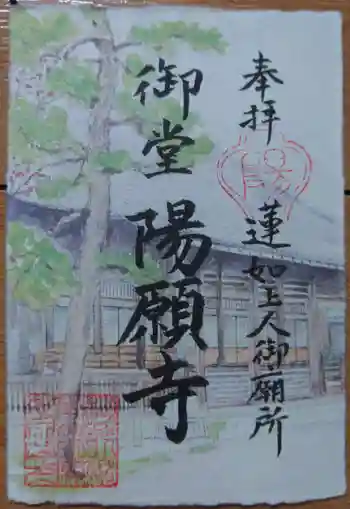 奉拝
蓮如上人御廟所
御堂
陽願寺